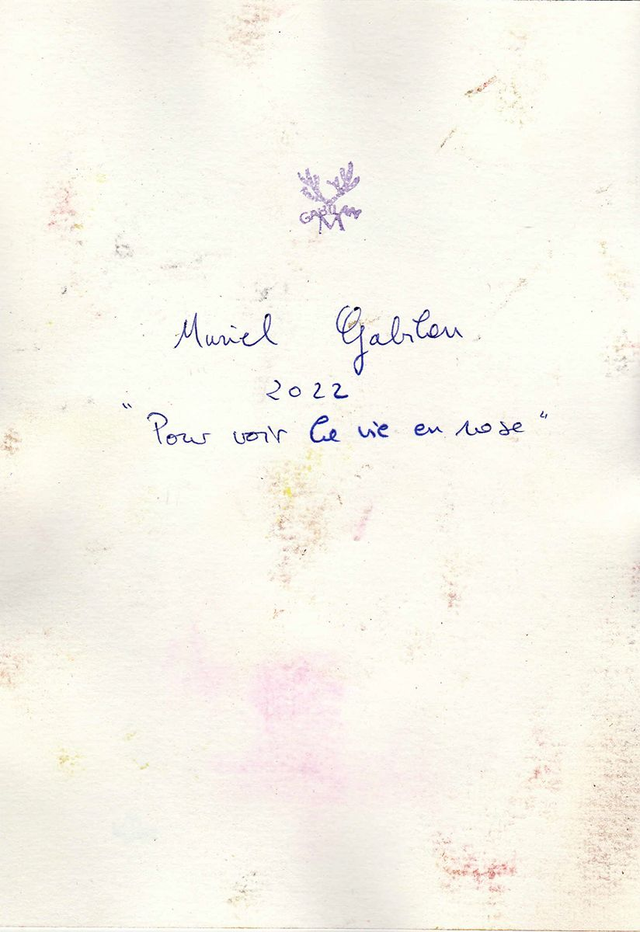 GABIL
M
Muriel Gabilan
2022
"Pour voir la vie en rose"